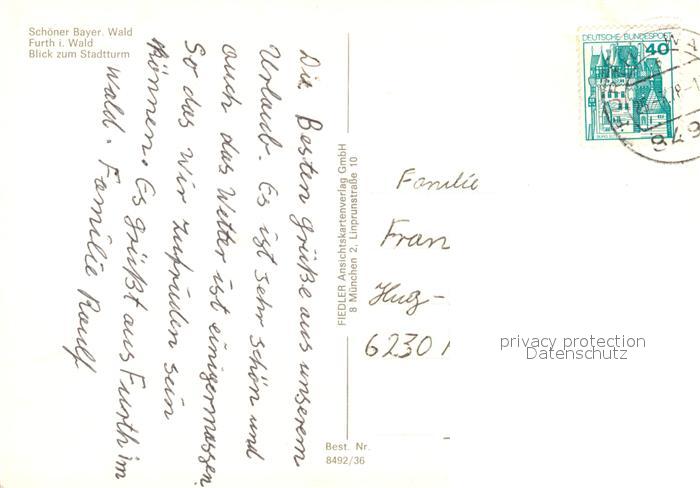 Schöner Bayer. Wald
Furth i. Wald
Blick zum Stadtturm
Die Besten grüße aus unserem
Urlaub. Es ist sehr schön und
auch das Wetter ist einigermassen
So das Wir zufrüden sein
können. Es grüßt aus Furth im
Wald. Familie Raulf
FIEDLER Ansichtskartenverlag GmbH
8 München 2, Linprunstraße 10
Best. Nr.
8492/36
DEUTSCHE BUNDESPOST
40
Familie
Fran
Hug-
6230
privacy protection
Datenschutz